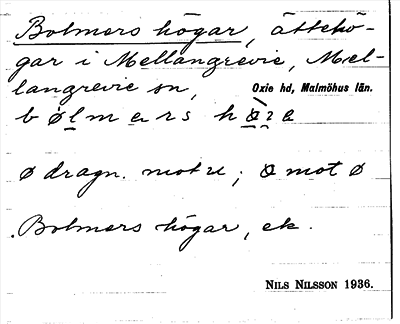 Bolmers högar, ättehö-
gar i Mellangrevie, Mel-
langrevie sn,
Oxie hd, Malmöhus län.
ø dragn. mot u; a mot ø
Bolmers högar, ek.
NILS NILSSON 1936.